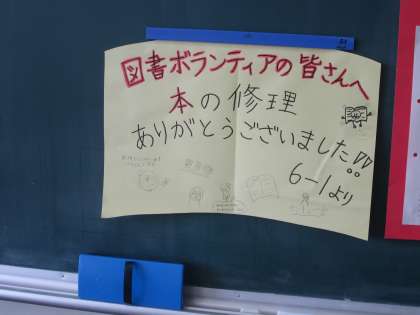 図書ボランティアの皆さんへ
本の修理
ありがとうございました!!
6-1より